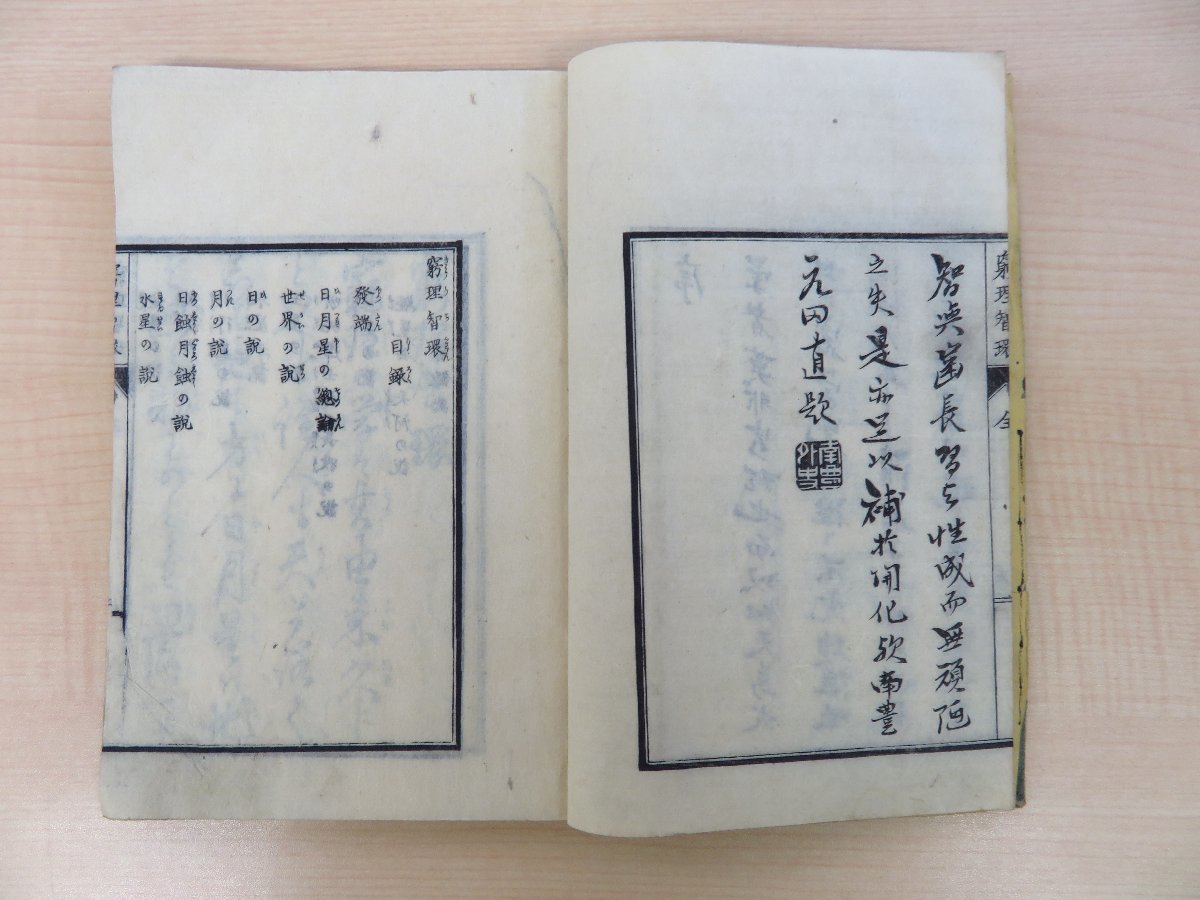 窮理智環
全
智與歯長習与性成而無頑陋
之失是亦足以補於開化欤南豊
元田直題
窮理智環
目録
發端
日月星の總論
世界の説
日の説
月の説
日蝕月蝕の説
水星の説